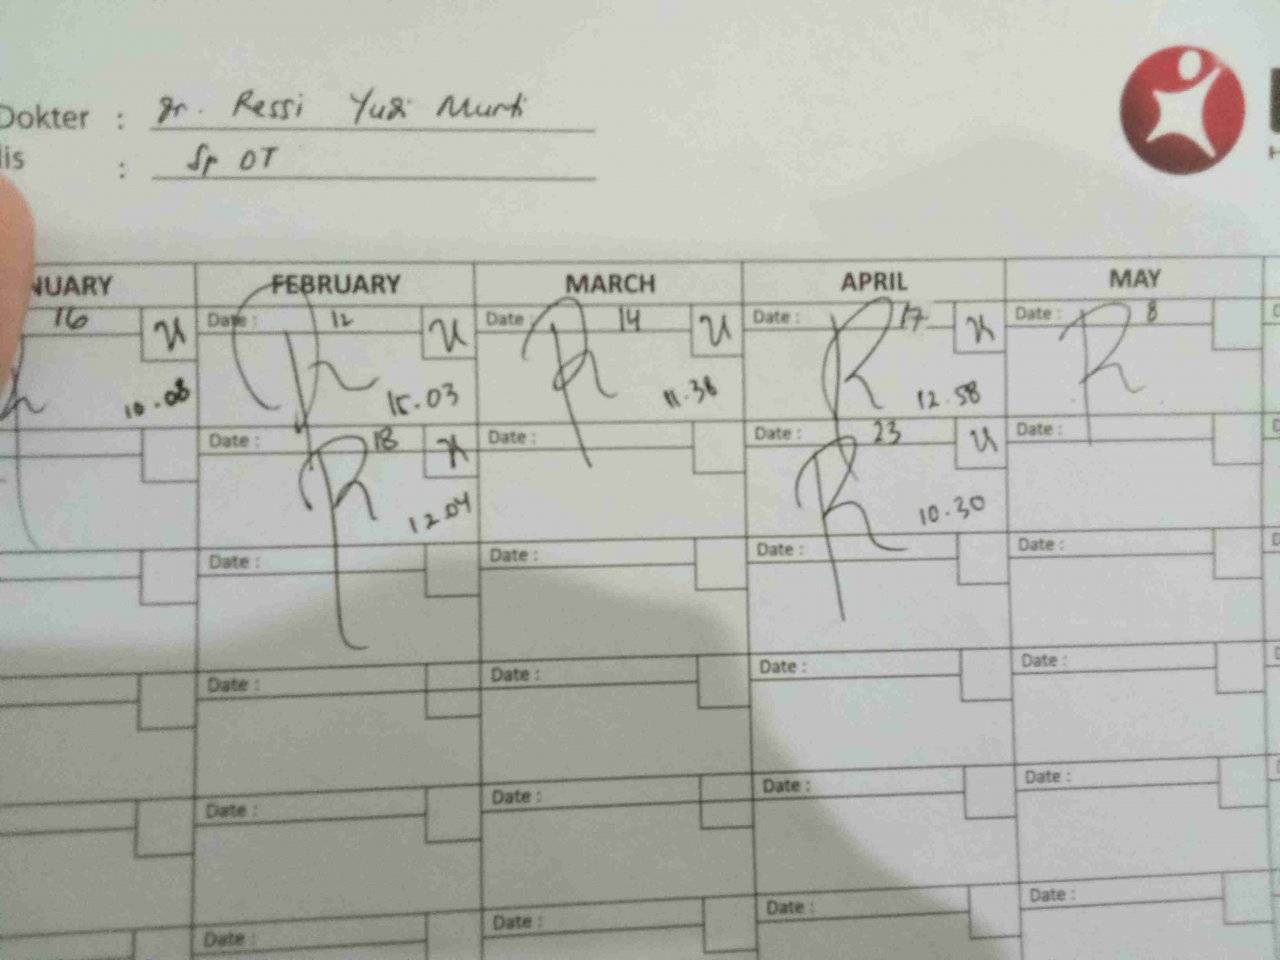 Dokter : dr. Ressi Yudi Murti
lis : Sp OT
NUARY FEBRUARY MARCH APRIL MAY
16 Date : 12 Date : 14 Date : 17 Date : 8
10.08 15.03 11.36 12.58
Date : 18 Date : Date : 23 Date :
12.04 10.30
Date : Date : Date : Date :
Date : Date : Date : Date :
Date : Date : Date : Date :
Date : Date : Date : Date :